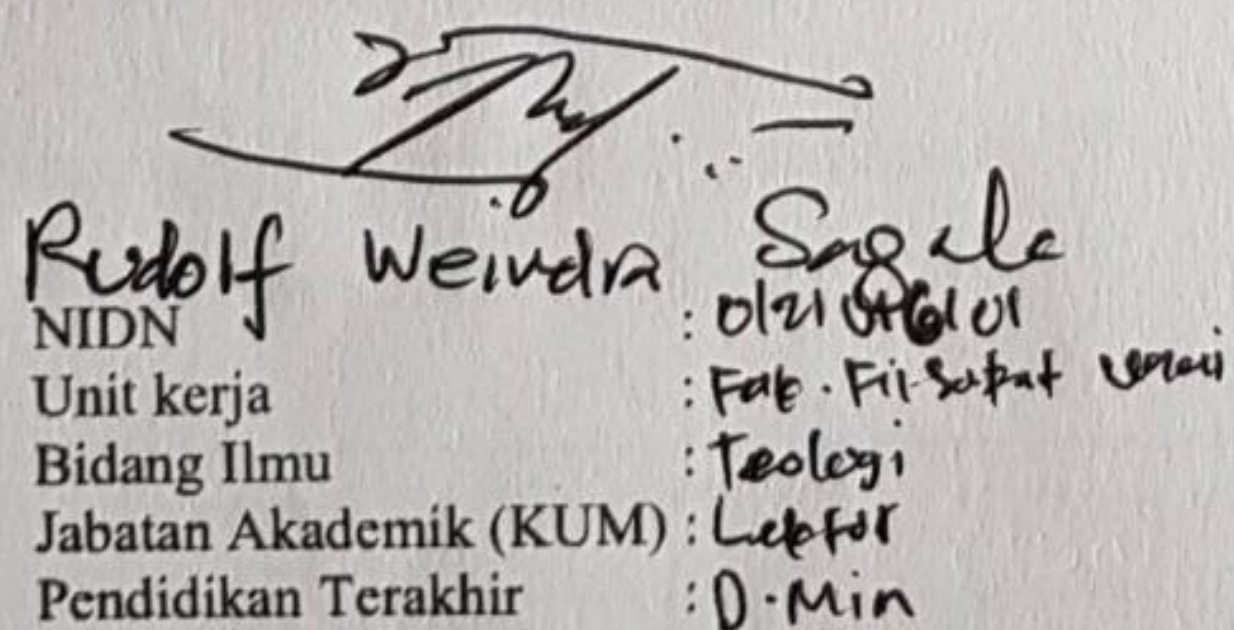 Rudolf Weindra Sagala
NIDN :
Unit kerja : Fak. Filsafat
Bidang Ilmu : Teologi
Jabatan Akademik (KUM) : Lektor
Pendidikan Terakhir : D.Min